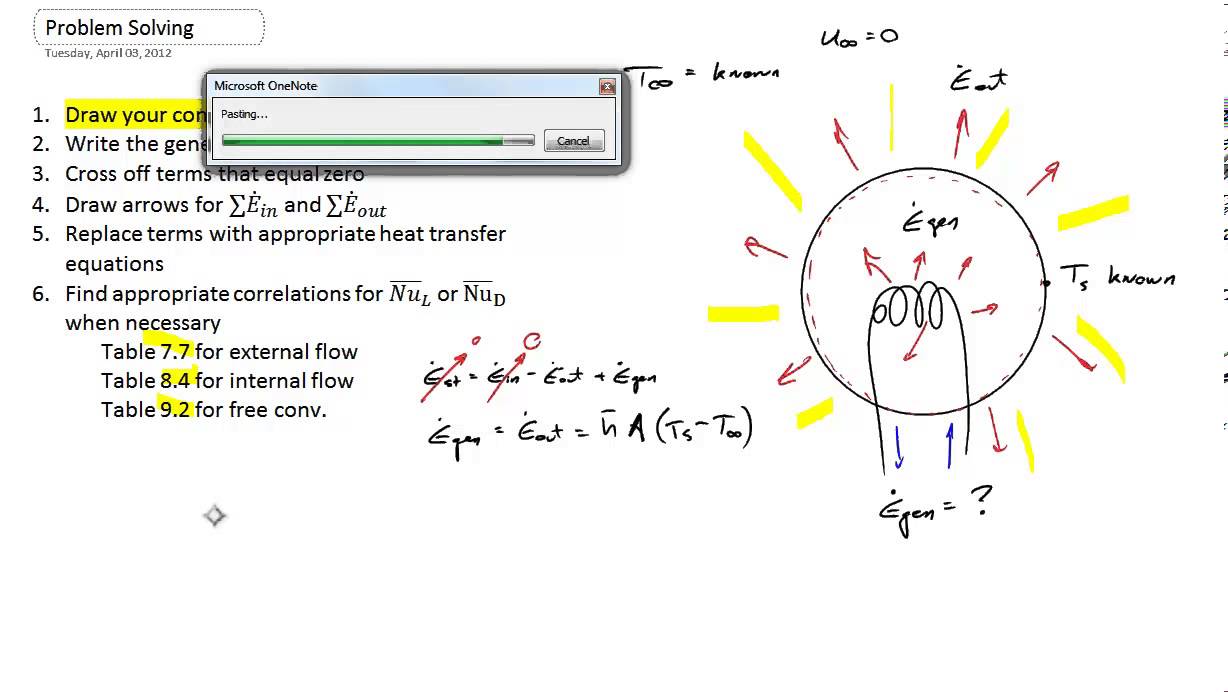 Problem Solving
Tuesday, April 03, 2012
Microsoft OneNote
Pasting...
Cancel
1. Draw your con
2. Write the gene
3. Cross off terms that equal zero
4. Draw arrows for ∑Ė_in and ∑Ė_out
5. Replace terms with appropriate heat transfer
equations
6. Find appropriate correlations for N̅u̅_L or N̅u̅_D
when necessary
Table 7.7 for external flow
Table 8.4 for internal flow
Table 9.2 for free conv.
u∞ = 0
T∞ = known
Ė_out
Ė_gen
T_s known
0 0
Ė_st = Ė_in - Ė_out + Ė_gen
Ė_gen = Ė_out = h̅ A (T_s - T∞)
Ė_gen = ?